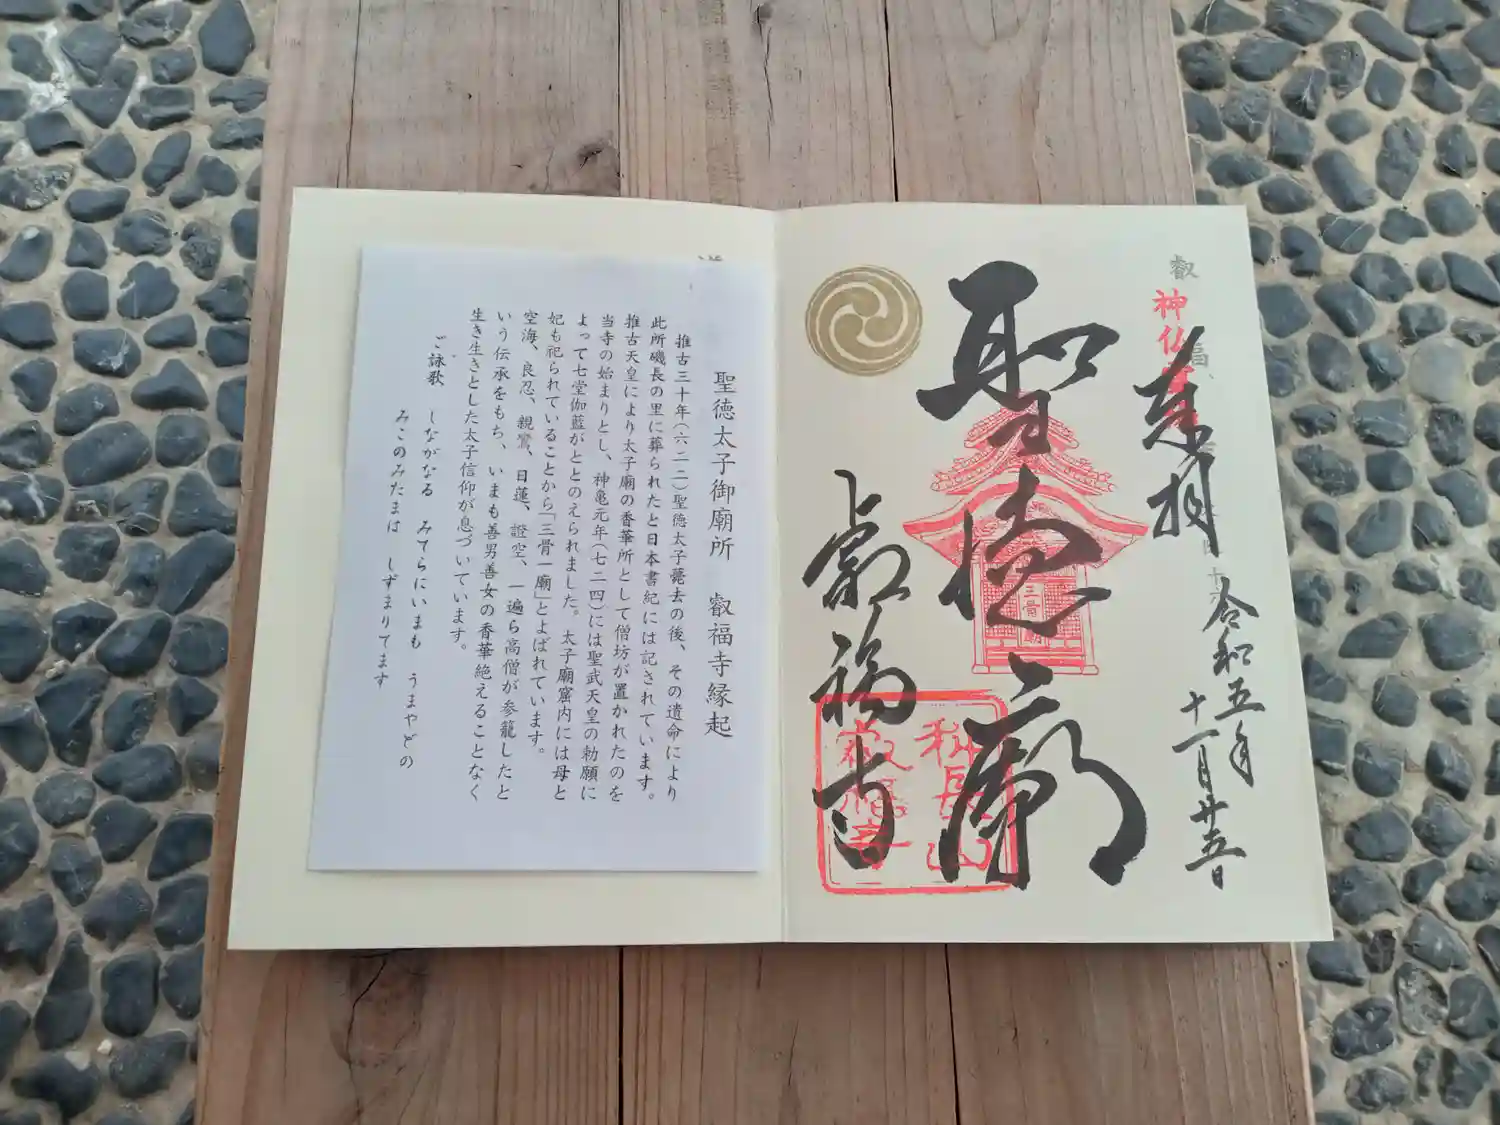 奉拝
令和五年
十一月廿五日
神仏
叡
福
聖徳廟
三骨一廟
叡福寺
科長山
叡福寺
聖徳太子御廟所　叡福寺縁起
推古三十年（六二二）聖徳太子薨去の後、その遺命により
此所磯長の里に葬られたと日本書紀には記されています。
推古天皇により太子廟の香華所として僧坊が置かれたのを
当寺の始まりとし、神亀元年（七二四）には聖武天皇の勅願に
よって七堂伽藍がととのえられました。太子廟窟内には母と
妃も祀られていることから「三骨一廟」とよばれています。
空海、良忍、親鸞、日蓮、證空、一遍ら高僧が参籠したと
いう伝承をもち、いまも善男善女の香華絶えることなく
生き生きとした太子信仰が息づいています。
ご詠歌　しながなる　みてらにいまも　うまやどの
みこのみたまは　しずまりてます